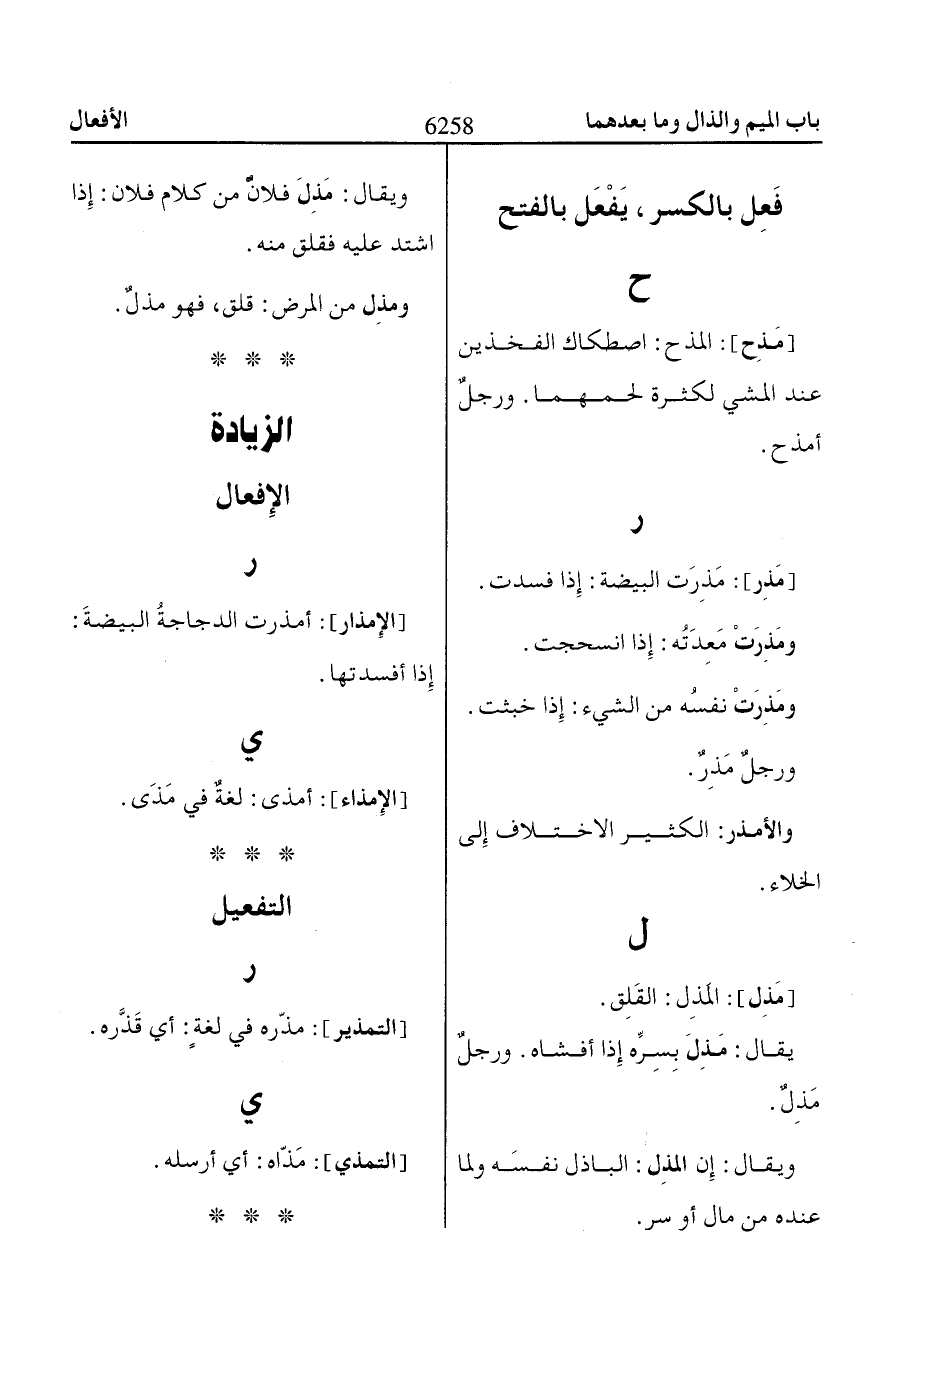 باب الميم والذال وما بعدهما
6258
الأفعال
فَعِل بالكسر، يَفْعَل بالفتح
ح
[مَذِح]: المذح: اصطكاك الفخذين
عند المشي لكثرة لحمهما. ورجلٌ
أمذح.
ر
[مَذِر]: مَذِرَت البيضة: إِذا فسدت.
ومَذِرَتْ مَعِدَتُه: إِذا انسحجت.
ومَذِرَتْ نفسُه من الشيء: إِذا خبثت.
ورجلٌ مَذِرٌ.
والأمذر: الكثير الاختلاف إِلى
الخلاء.
ل
[مَذِل]: المَذِل: القَلِق.
يقال: مَذِلَ بِسِرِّه إِذا أفشاه. ورجلٌ
مَذِلٌ.
ويقال: إِن المذِل: الباذل نفسَه ولما
عنده من مال أو سر.
ويقال: مَذِلَ فلانٌ من كلام فلان: إِذا
اشتد عليه فقلق منه.
ومذِل من المرض: قلق، فهو مذلٌ.
* * *
الزيادة
الإِفعال
ر
[الإِمذار]: أمذرت الدجاجةُ البيضةَ:
إِذا أفسدتها.
ي
[الإِمذاء]: أمذى: لغةٌ في مَذَى.
* * *
التفعيل
ر
[التمذير]: مذّره في لغةٍ: أي قَذَّره.
ي
[التمذي]: مَذّاه: أي أرسله.
* * *